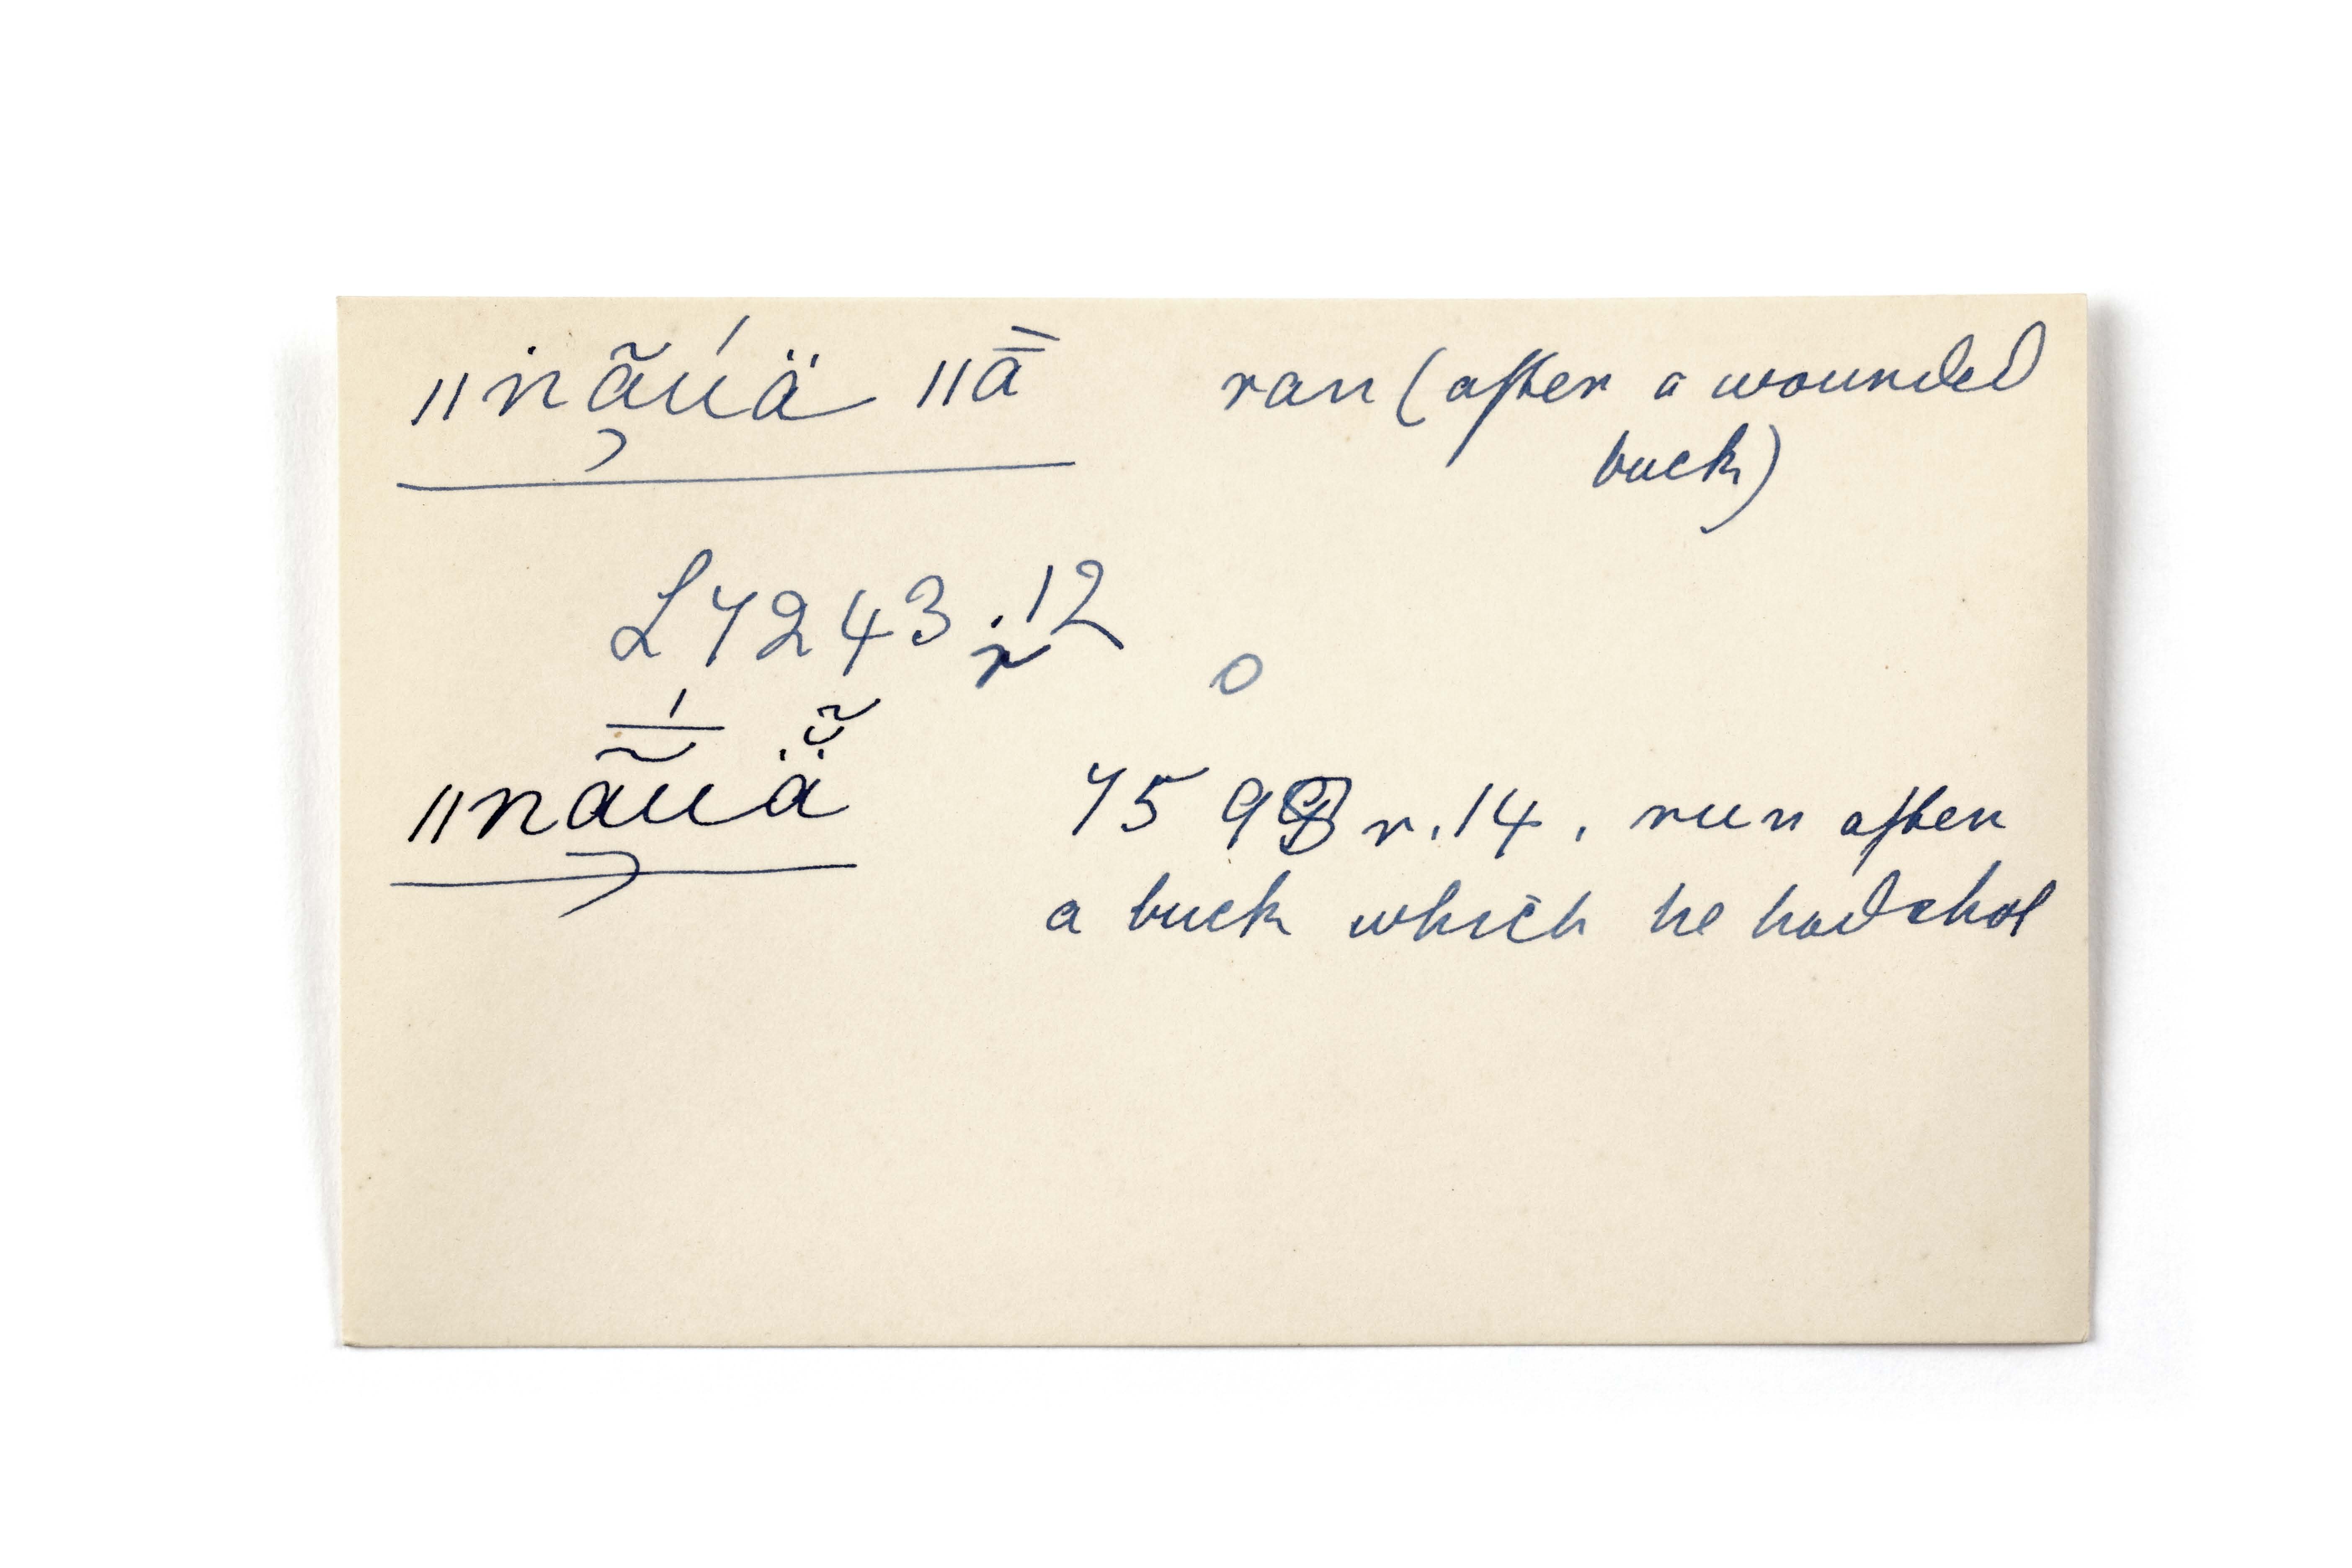 ǁnã̯úä ǁā̄ ran (after a wounded
buck)
L7243 r.12
o
ǁnã̯̄́uä̆̃ 759 r.14, run after
a buck which he had shot